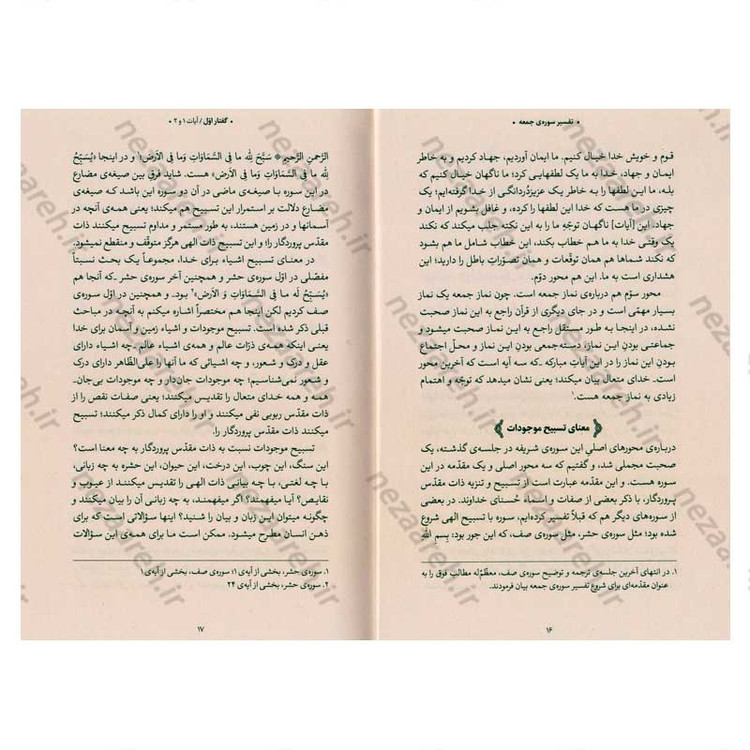 • تفسیر سوره‌ی جمعه •
قوم و خویش خدا خیال کنیم. ما ایمان آوردیم، جهاد کردیم و به خاطر
ایمان و جهاد، خدا به ما یک لطفهایی کرد؛ ما ناگهان خیال کنیم که
بله، ما این لطفها را به خاطر یک عزیزدُردانگی از خدا گرفته‌ایم؛ یک
چیزی در ما هست که خدا این لطفها را کرده، و غافل بشویم از ایمان و
جهاد. این [آیات] ناگهان توجّه ما را به این نکته جلب میکند که نکند
یک وقتی خدا به ما هم خطاب بکند، این خطاب شامل ما هم بشود
که نکند شماها هم همان توقّعات و همان تصوّرات باطل را دارید؛ این
هشداری است به ما. این هم محور دوّم.
محور سوّم هم درباره‌ی نماز جمعه است. چون نماز جمعه یک نماز
بسیار مهمّی است و در جای دیگری از قرآن راجع به این نماز صحبت
نشده، در اینجا به طور مستقل راجع به این نماز صحبت میشود و
جماعتی بودنِ این نماز، دسته‌جمعی بودنِ این نماز، و محلّ اجتماع
بودنِ این نماز را در این آیاتِ مبارکه ـ که سه آیه است که آخرین محور
است ـ خدای متعال بیان میکند؛ یعنی نشان میدهد که توجّه و اهتمام
زیادی به نماز جمعه هست.۱
معنای تسبیح موجودات
درباره‌ی محورهای اصلیِ این سوره‌ی شریفه در جلسه‌ی گذشته، یک
صحبت مجملی شد، و گفتیم که سه محور اصلی و یک مقدّمه در این
سوره هست. و این مقدّمه عبارت است از تسبیح و تنزیه ذات مقدّس
پروردگار، با ذکر بعضی از صفات و اسماء حُسنای خداوند. در بعضی
از سوره‌های دیگر هم که قبلاً تفسیر کرده‌ایم، سوره با تسبیح الهی شروع
شده بود؛ مثل سوره‌ی حشر، مثل سوره‌ی صف، که این جور بود: بِسمِ اللهِ
۱. در انتهای آخرین جلسه‌ی ترجمه و توضیح سوره‌ی صف، معظّم‌له مطالب فوق را به
عنوان مقدّمه‌ای برای شروع تفسیر سوره‌ی جمعه بیان فرمودند.
۱۶
• گفتار اوّل / آیات ۱ و ۲ •
الرَّحمنِ الرَّحیمِ * سَبَّحَ لِلّهِ ما فِی السَّماواتِ وَما فِی الاَرضِ؛۱ و در اینجا «یُسَبِّحُ
لِلّهِ ما فِی السَّماواتِ وَما فِی الاَرضِ» هست. شاید فرق بین صیغه‌ی مضارع
در این سوره با صیغه‌ی ماضی در آن دو سوره این باشد که صیغه‌ی
مضارع دلالت بر استمرار این تسبیح هم میکند؛ یعنی همه‌ی آنچه در
آسمانها و در زمین هستند، به طور مستمر و مداوم تسبیح میکنند ذات
مقدّس پروردگار را؛ و این تسبیح ذات الهی هرگز متوقّف و منقطع نمیشود.
در معنای تسبیح اشیاء برای خدا، مجموعاً یک بحث نسبتاً
مفصّلی در اوّل سوره‌ی حشر و همچنین آخر سوره‌ی حشر ـ که آنجا هم
«یُسَبِّحُ لَه ما فِی السَّماواتِ وَ الاَرضِ»۲ بود ـ و همچنین در اوّل سوره‌ی
صف کردیم لکن اینجا هم مختصراً اشاره میکنم به آنچه در مباحث
قبلی ذکر شده است. تسبیح موجودات و اشیاء زمین و آسمان برای خدا
یعنی اینکه همه‌ی ذرّات عالم و همه‌ی اشیاء عالم، چه اشیاء دارای
عقل و درک و شعور، و چه اشیائی که ما آنها را علی‌الظّاهر دارای درک
و شعور نمی‌شناسیم؛ چه موجودات جان‌دار و چه موجودات بی‌جان ـ
همه و همه خدای متعال را تقدیس میکنند؛ یعنی صفات نقص را از
ذات مقدّس ربوبی نفی میکنند و او را دارای کمال ذکر میکنند؛ تسبیح
میکنند ذات مقدّس پروردگار را.
تسبیح موجودات نسبت به ذات مقدّس پروردگار به چه معنا است؟
این سنگ، این چوب، این درخت، این حیوان، این حشره به چه زبانی،
با چه لغتی، با چه بیانی ذات الهی را تقدیس میکنند از عیوب و
نقایص؟ آیا میفهمند؟ اگر میفهمند، به چه زبانی آن را بیان میکنند و
چگونه میتوان این زبان و بیان را شنید؟ اینها سؤالاتی است که برای
ذهن انسان مطرح میشود. ممکن است ما برای همه‌ی این سؤالات
۱. سوره‌ی حشر، بخشی از آیه‌ی ۱؛ سوره‌ی صف، بخشی از آیه‌ی ۱
۲. سوره‌ی حشر، بخشی از آیه‌ی ۲۴
۱۷
nezaareh.ir